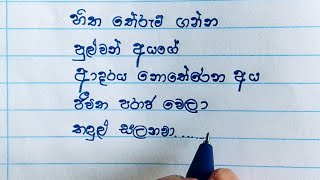 හිත තේරුම් ගන්න
පුල්වන් අයගේ
ආදරය නොතේරෙන අය
ජීවිත පරාජ වෙලා
කඳුළු සලනවා........